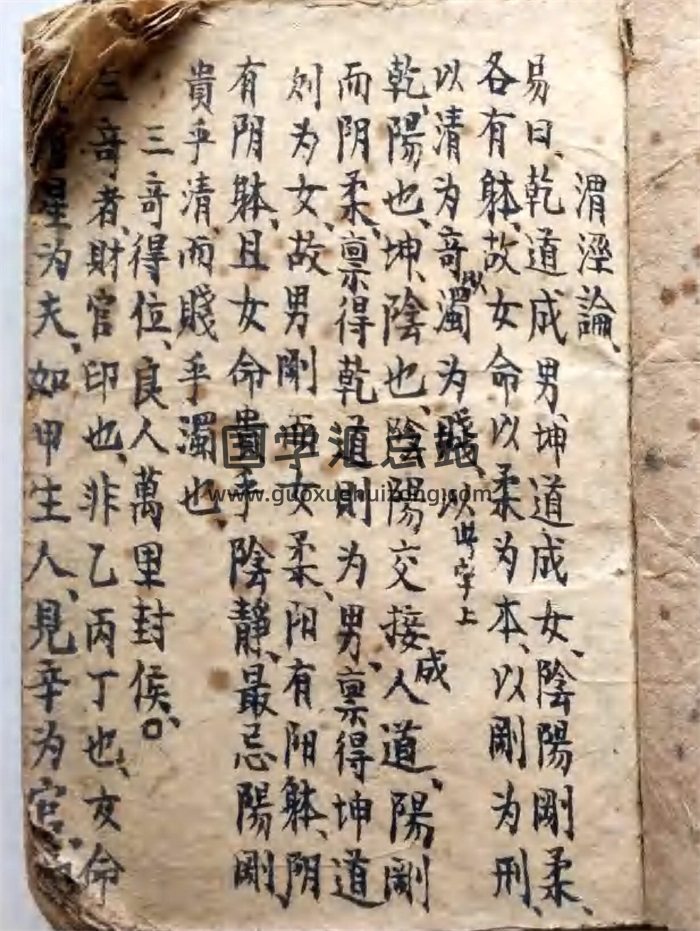 渭涇論、
易曰、乾道成男、坤道成女、陰陽剛柔、
各有躰、故女命以柔为本、以剛为刑、
以清为奇、以濁为賤、以此字上
乾、陽也、坤、陰也、陰陽交接、成人道、陽剛
而阴柔、禀得乾道則为男、禀得坤道
則为女、故男剛而女柔、阳有阳躰、阴
有阴躰、且女命貴乎陰靜、最忌陽剛、
貴乎清、而賤乎濁也、
三奇得位、良人萬里封侯、口
三奇者、財官印也、非乙丙丁也、女命
星为夫、如甲生人、見辛为官、
国学汇总站
www.guoxuehuizong.com